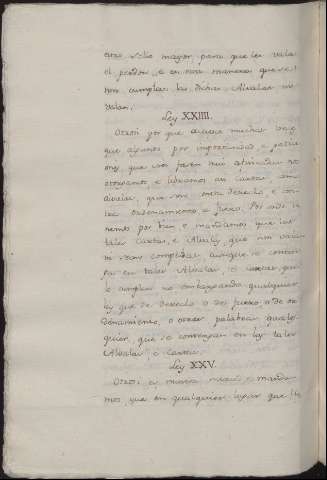 otro sello mayor, para que les vala
el perdon, e en otra manera que se
non cumplan las dichas Alvalas nin
valan.
Ley XXIIII.
Otrosi por que acaece muchas veces
que algunos por importunidad, e peticiones
que nos facen muy afincadas
otorgamos, e libramos Cartas,
Alvalas, que son contra derecho, e contra
ordenamiento, o fuero. Por ende tenemos
por bien e mandamos que las
tales Cartas, e Alvalas, que non valan
nin sean cumplidas, aunque se contenga
en las tales Alvalas, o Cartas que
se cumplan no embargando qualquier
ley que de derecho, o de fuero, o de ordenamiento,
o otras palabras qualesquier,
que se contengan en las tales
Alvalas, o Cartas.
Ley XXV.
Otrosi es nuestra merced, e mandamos,
que en qualquier logar que